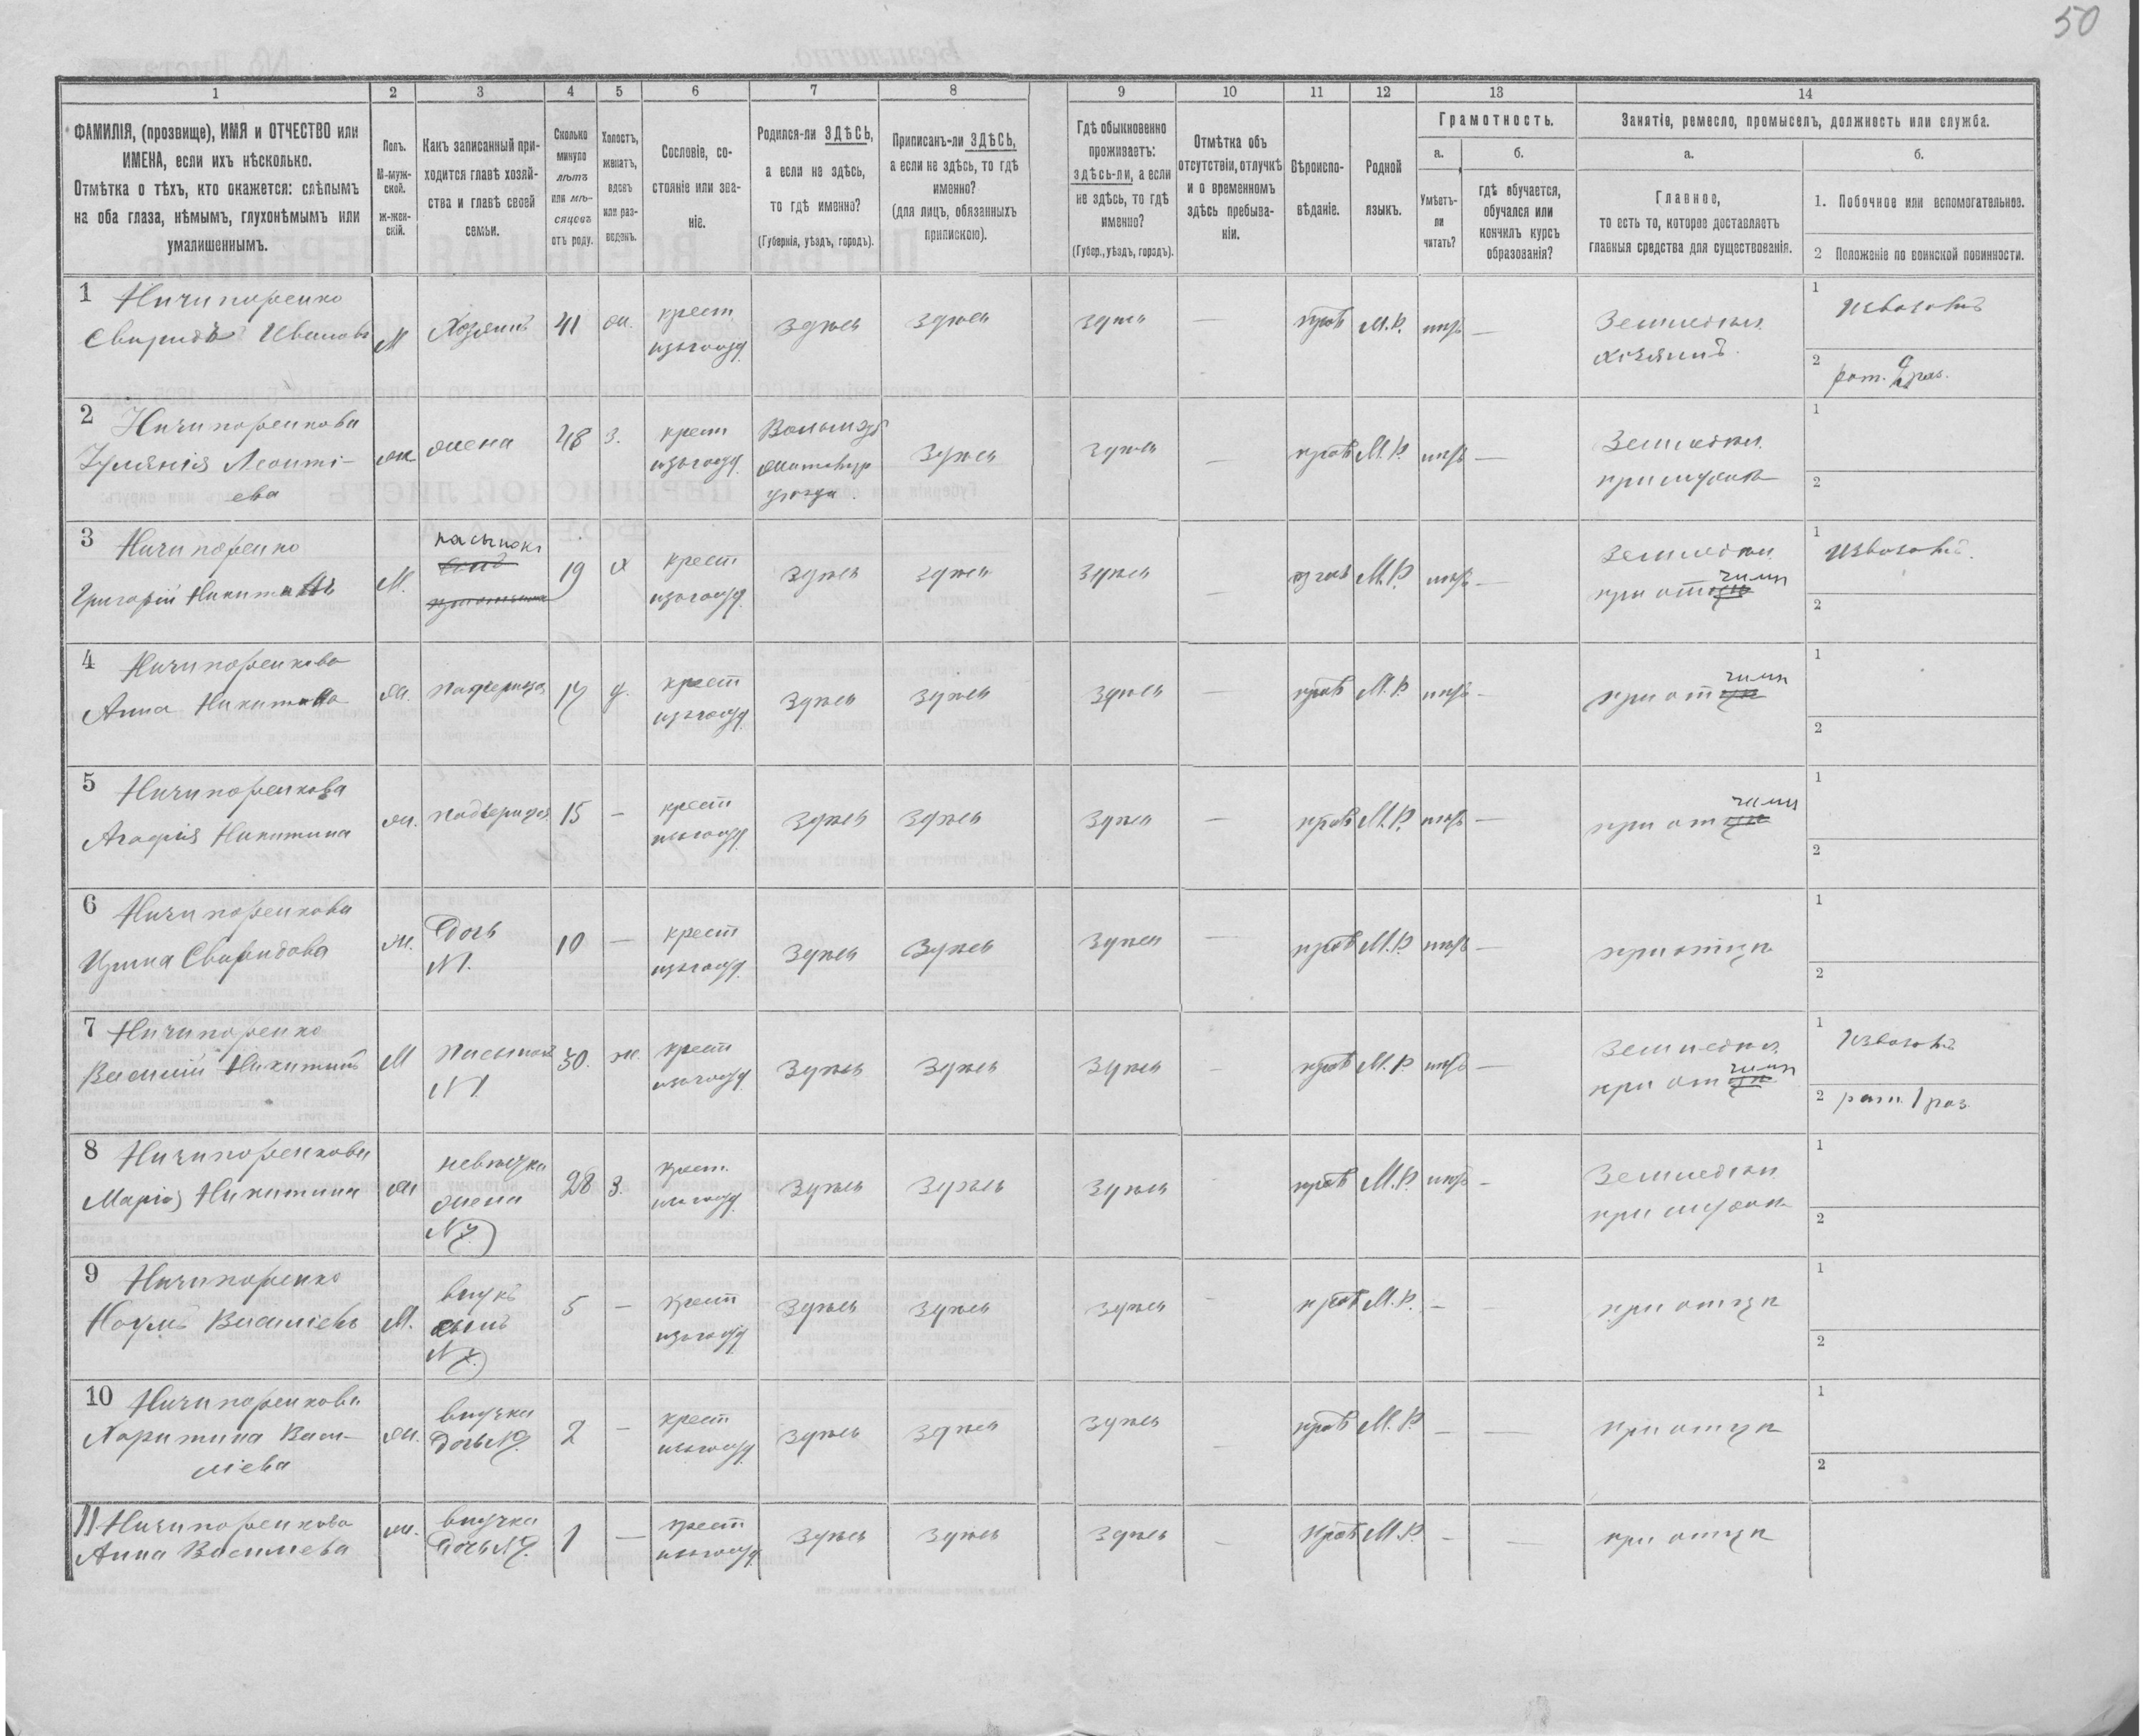 50
1 2 3 4 5 6 7 8 9 10 11 12 13 14
ФАМИЛІЯ, (прозвище), ИМЯ и ОТЧЕСТВО или
ИМЕНА, если ихъ нѣсколько.
Отмѣтка о тѣхъ, кто окажется: слѣпымъ
на оба глаза, нѣмымъ, глухонѣмымъ или
умалишеннымъ.
Полъ.
М-муж-
ской.
ж-жен-
скій.
Какъ записанный при-
ходится главѣ хозяй-
ства и главѣ своей
семьи.
Сколько
минуло
лѣтъ
или мѣ-
сяцевъ
отъ роду.
Холостъ,
женатъ,
вдовъ
или раз-
веденъ.
Сословіе, со-
стояніе или зва-
ніе.
Родился-ли ЗДѢСЬ,
а если не здѣсь,
то гдѣ именно?
(Губернія, уѣздъ, городъ).
Приписанъ-ли ЗДѢСЬ,
а если не здѣсь, то гдѣ
именно?
(для лицъ, обязанныхъ
припискою).
Гдѣ обыкновенно
проживаетъ:
здѣсь-ли, а если
не здѣсь, то гдѣ
именно?
(Губер., уѣздъ, городъ).
Отмѣтка объ
отсутствіи, отлучкѣ
и о временномъ
здѣсь пребыва-
ніи.
Вѣроиспо-
вѣданіе.
Родной
языкъ.
Грамотность.
а.
Умѣетъ-
ли
читать?
б.
гдѣ обучается,
обучался или
кончилъ курсъ
образованія?
Занятіе, ремесло, промыселъ, должность или служба.
а.
Главное,
то есть то, которое доставляетъ
главныя средства для существованія.
б.
1. Побочное или вспомогательное.
2 Положеніе по воинской повинности.
1 Ничипоренко
Свиридъ Ивановъ М Хозяинъ 41 ж. крест. здѣсь здѣсь здѣсь — прав М.Р. нѣтъ — Земледѣл.
хозяинъ.
1 Извозомъ
2 рат. 2 раз.
2 Ничипоренкова
Іулянія Леонті-
ева
ж жена 48 з. крест здѣсь здѣсь — прав М.Р. нѣтъ — Земледѣл.
при мужѣ
1
2
3 Ничипоренко
Григорій Никитинъ М. пасынокъ 19 х крест здѣсь здѣсь здѣсь — прав М.Р. нѣтъ — Земледѣл
при отчимѣ
1 Извозомъ.
2
4 Ничипоренкова
Анна Никитина ж. падчерица 17 д. крест здѣсь здѣсь здѣсь — прав М.Р. нѣтъ — при отчимѣ
1
2
5 Ничипоренкова
Агафія Никитина ж. падчерица 15 — крест здѣсь здѣсь здѣсь — прав М.Р. нѣтъ — при отчимѣ
1
2
6 Ничипоренкова
Ирина Свиридова ж. Дочь
N1. 10 — крест здѣсь здѣсь здѣсь — прав М.Р. нѣтъ — при отцѣ
1
2
7 Ничипоренко
Василій Никитинъ М пасынокъ
N1 30. ж. крест здѣсь здѣсь здѣсь — прав М.Р. нѣтъ — Земледѣл.
при отчимѣ
1 Извозомъ
2 рат. 1 раз.
8 Ничипоренкова
Марія Никитина ж невѣстка
жена
N7) 28 з. крест. здѣсь здѣсь здѣсь прав М.Р. нѣтъ — Земледѣл
при мужѣ
1
2
9 Ничипоренко
Наумъ Василіевъ М. внукъ
сынъ
N7.) 5 — крест здѣсь здѣсь здѣсь — прав М.Р. — при отцѣ
1
2
10 Ничипоренкова
Харитина Васи-
ліева
ж. внучка
Дочь N7. 2 — крест здѣсь здѣсь здѣсь — прав М.Р. — — при отцѣ
1
2
11 Ничипоренкова
Анна Василиева ж. внучка
Дочь N7. 1 — крест здѣсь здѣсь здѣсь — прав М.Р. — — при отцѣ